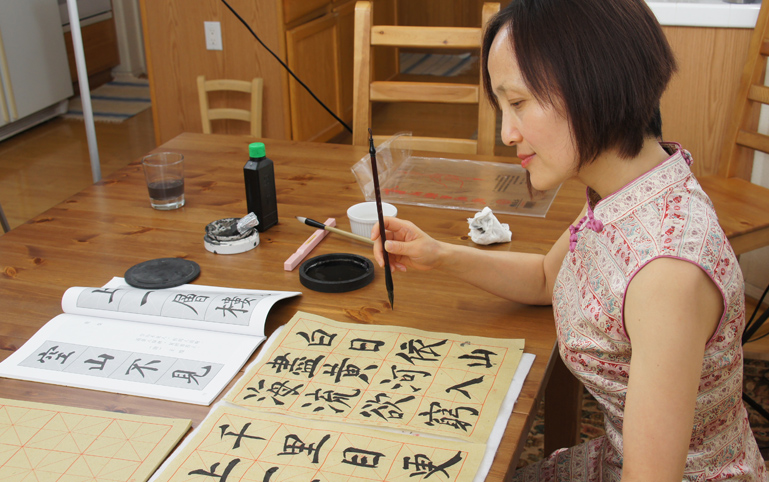 上一層樓
空山不見
白日依山
盡黃河入
海流欲窮
千里目更
上一